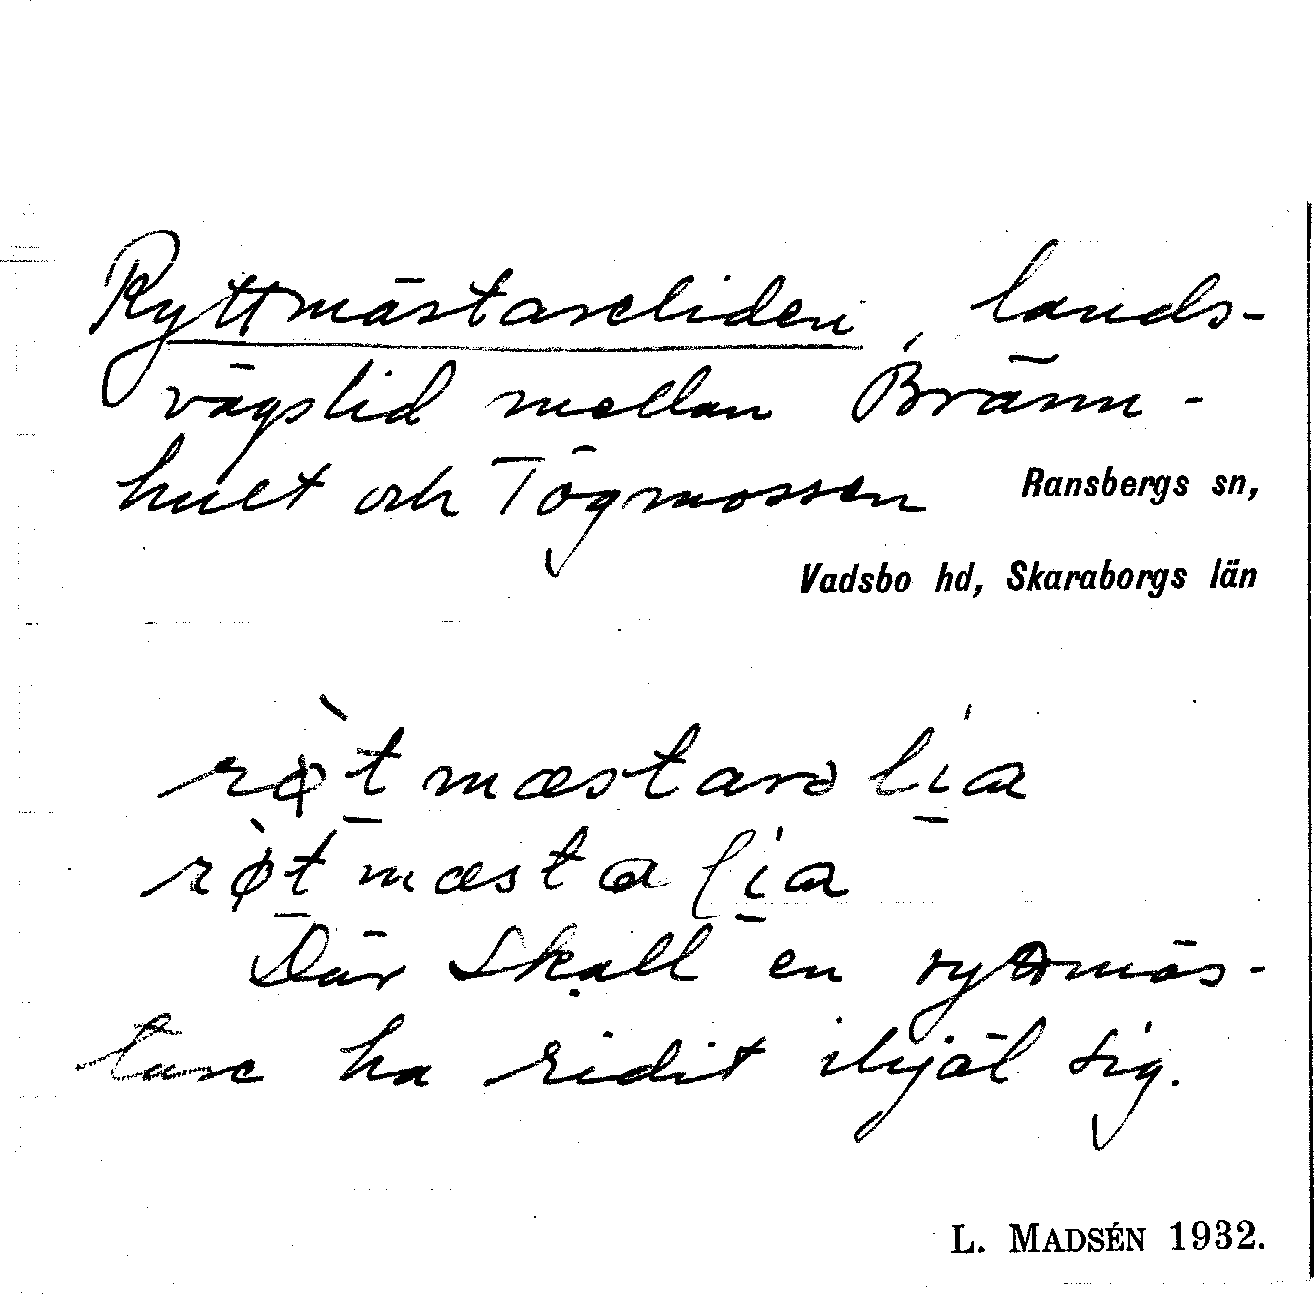 Ryttmästareliden, lands-
vägslid mellan Bränn-
hult och Tögmossen
Ransbergs sn,
Vadsbo hd, Skaraborgs län
rø̀t mæstarə lia
rø̀t mæsta lia
Där skall en ryttmäs-
tare ha ridit ihjäl sig.
L. MADSÉN 1932.